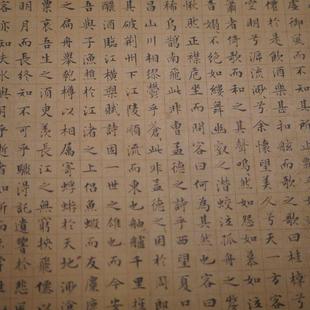 虛御風而
是飲酒樂甚扣舷而歌之歌曰桂棹兮
空明兮泝流光渺渺兮余懷望美人兮天一方
簫者倚歌而和之其聲嗚嗚然如怨如慕如泣
音嫋嫋不絕如縷舞幽壑之潛蛟泣孤舟之嫠
愀然正襟危坐而問客曰何為其然也客曰
稀烏鵲南飛此非曹孟德之詩乎西望夏口
昌山川相繆鬱乎蒼蒼此非孟德之困於周郎
其破荊州下江陵順流而東也舳艫千里旌
釃酒臨江橫槊賦詩固一世之雄也而今安
吾與子漁樵於江渚之上侶魚蝦而友麋鹿
之扁舟舉匏樽以相屬寄蜉蝣於天地渺滄
粟哀吾生之須臾羨長江之無窮挾飛僊以遨
明月而長終知不可乎驟得託遺響於悲風
客亦知夫水與月乎逝者如斯而